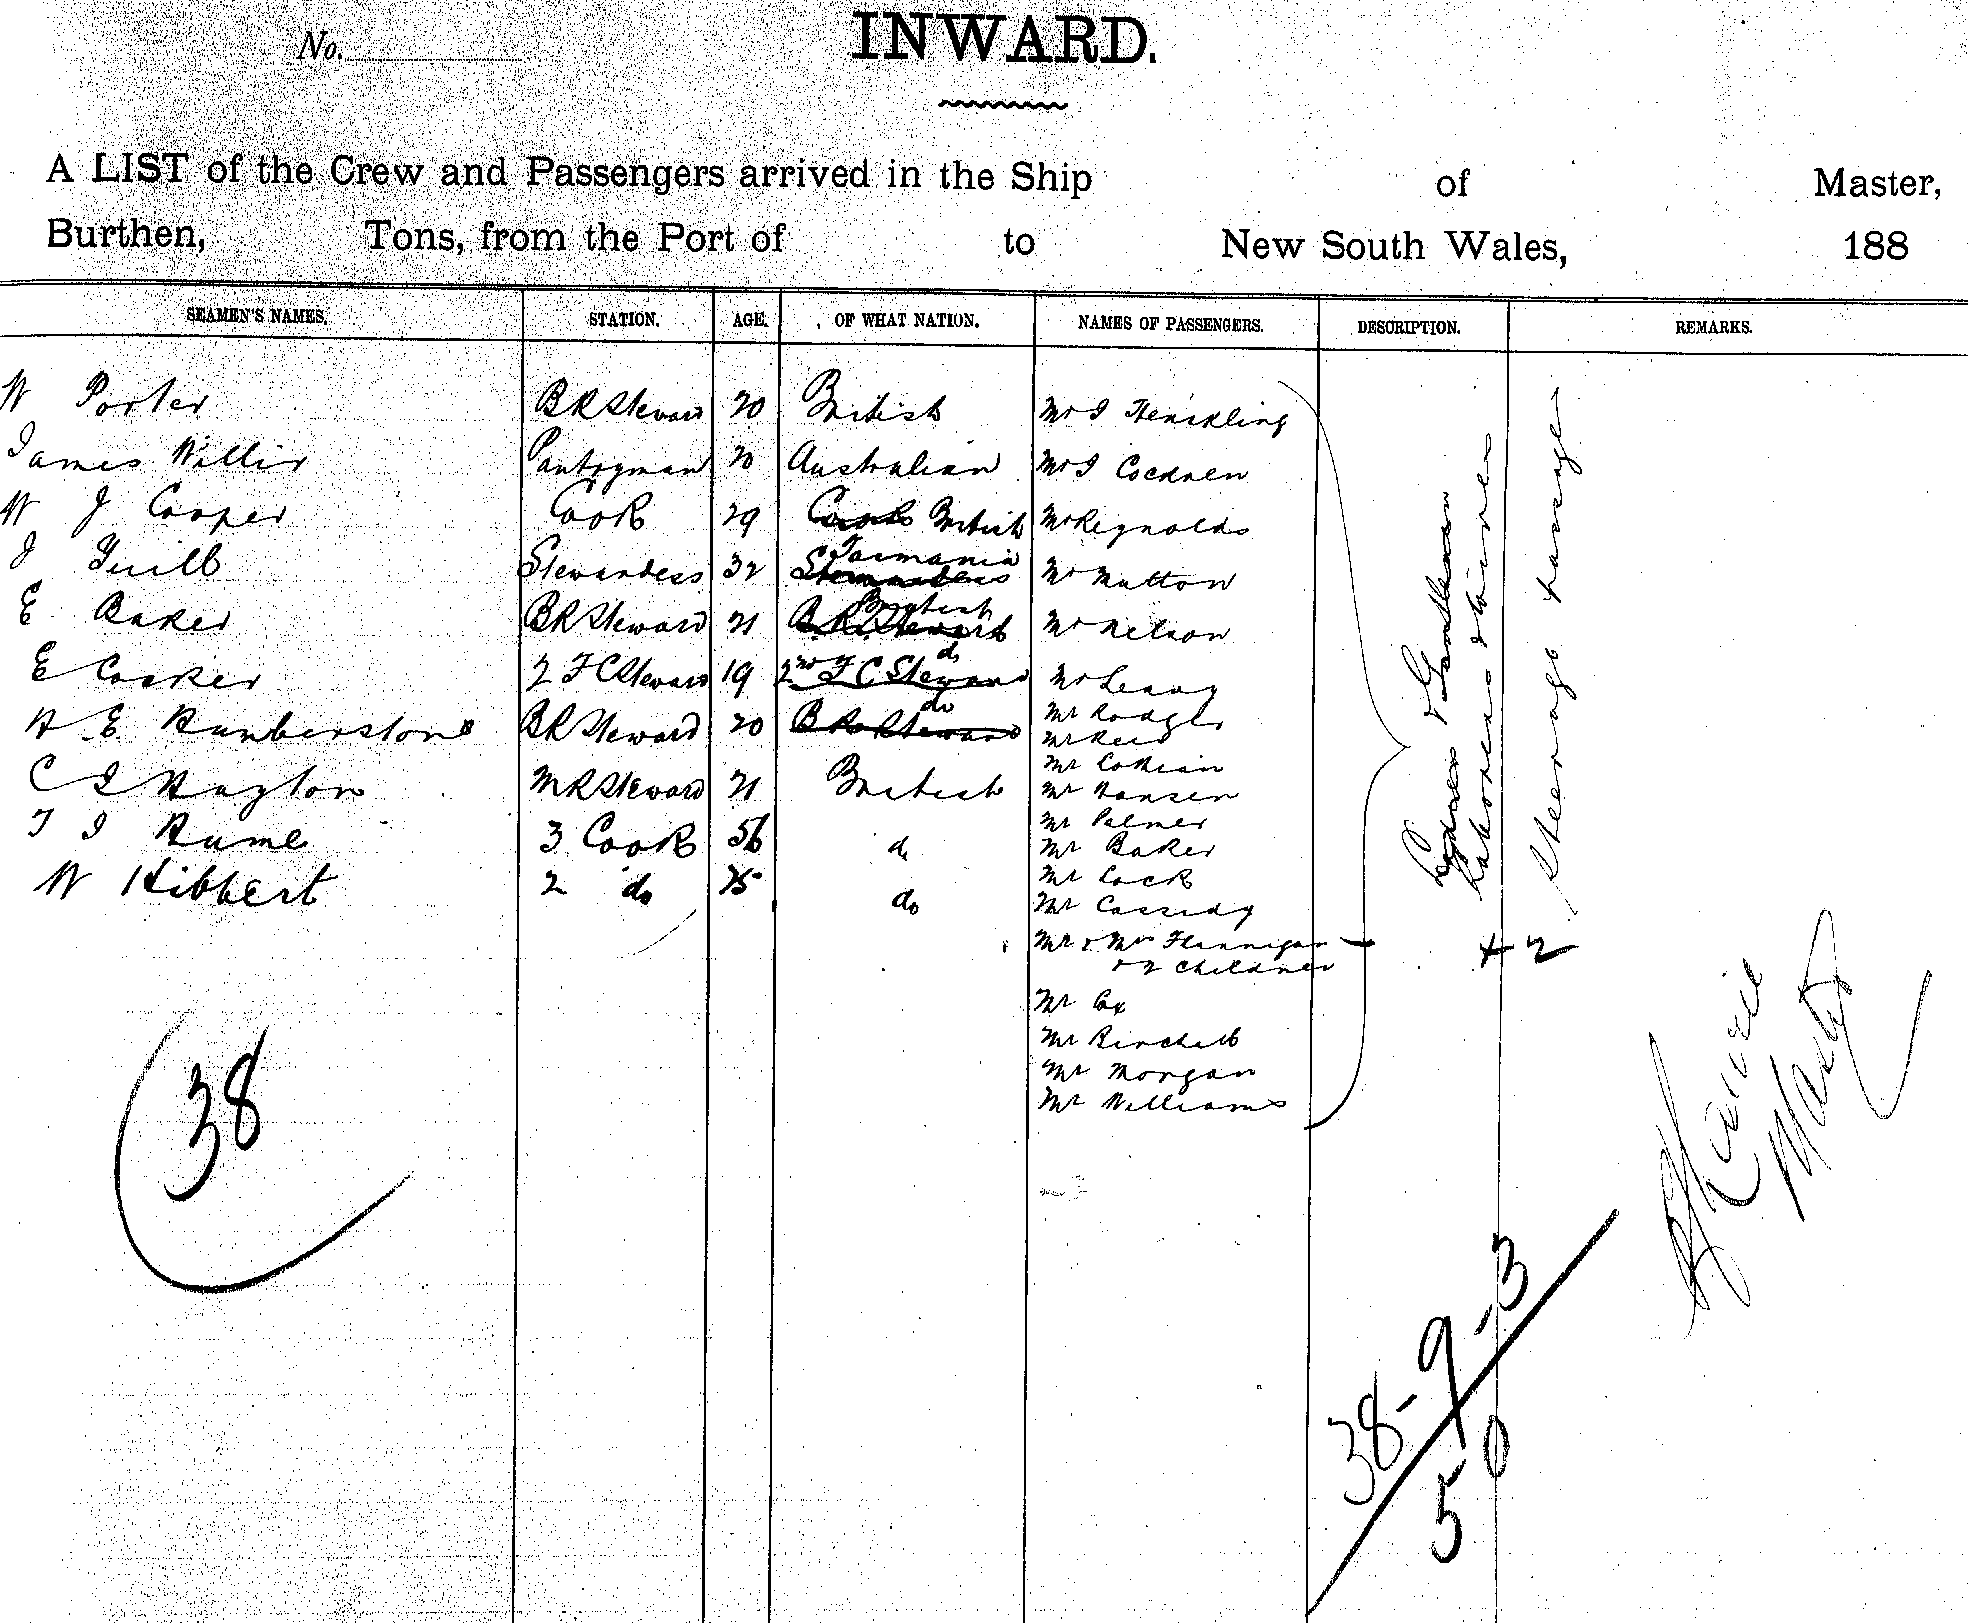 No.
INWARD.
A LIST of the Crew and Passengers arrived in the Ship of Master,
Burthen, Tons, from the Port of to New South Wales, 188
SEAMEN'S NAMES. STATION. AGE. OF WHAT NATION. NAMES OF PASSENGERS. DESCRIPTION. REMARKS.
W Porter B R Steward 20 British Mr J
James Willis Pantryman 20 Australian Mr J
W J Cooper Cook 29 Cook British Mr Reynolds
J Stewardess 32 Stewardess Tasmania Mr Mutton
E Baker B R Steward 21 B. R. Steward British Mr Nelson
E Cooker 2 F C Steward 19 2nd F C Steward do Mr Leavy
H E Humberstone B R Steward 20 B R Steward do Mr Rodger
Mr Reid
Mr
C J Hayton M R Steward 21 British Mr Hansen
Mr Palmer
T J Hume 3 Cook 56 do Mr Baker
Mr Lock
W Hibbert 2 do 25 do Mr Cassidy
Mr & Mrs Flannigan + 2
& 2 Children
Mr Cox
Mr Birchell
Mr Morgan
Mr Williams
Ladies & Gentleman
Labourers & Miners
Steerage Passage
38
Master
38-9-3
50